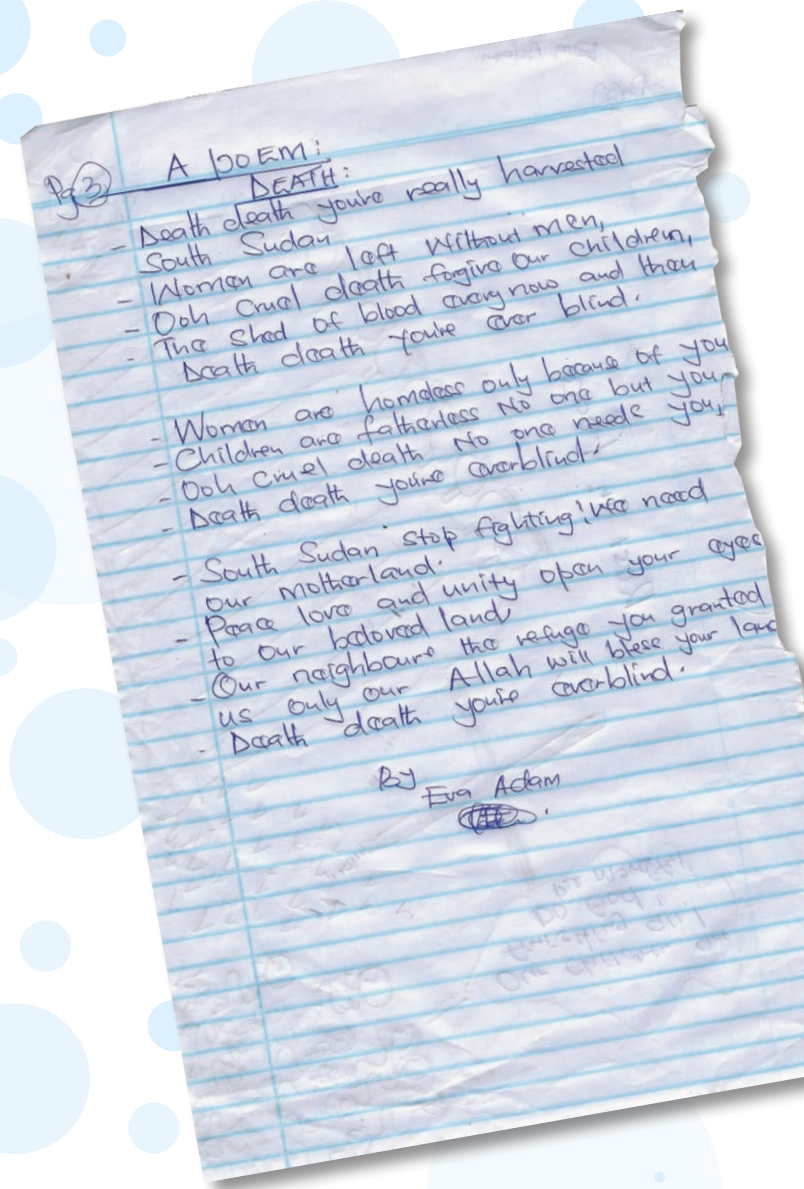 Pg 3
A POEM:
DEATH:
- Death death you're really harvested
South Sudan
- Women are left without men,
- Ooh Cruel death forgive our children,
- The shed of blood every now and then
Death death you're ever blind.
- Women are homeless only because of you
- Children are fatherless No one but you
- Ooh Cruel death No one needs you,
- Death death you're everblind.
- South Sudan stop fighting! We need
our motherland.
- Peace love and unity open your eyes
to our beloved land
- Our neighbours the refuge you granted
us only our Allah will bless your land
- Death death you're everblind.
By
Eva Adam